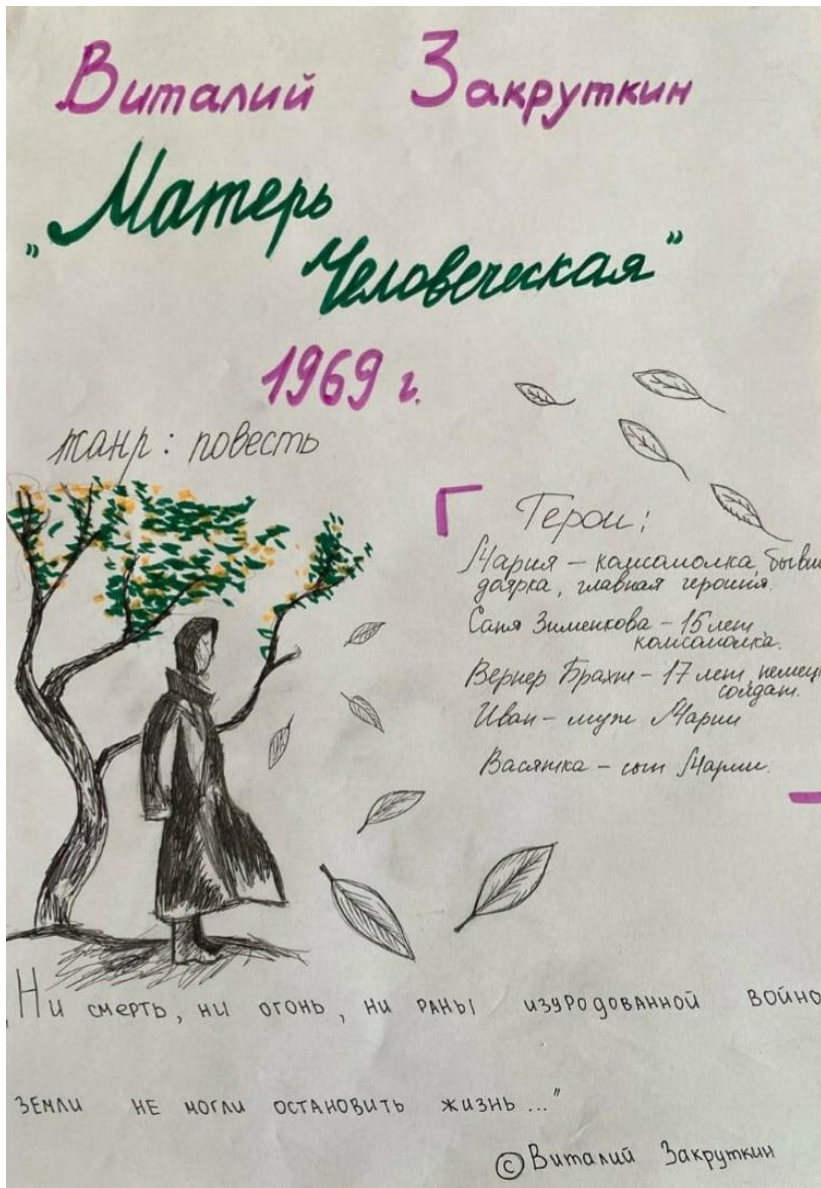 Виталий Закруткин
"Матерь
Человеческая"
1969 г.
жанр: повесть
Герои:
Мария – комсомолка, бывш
доярка, главная героиня.
Саня Зименкова – 15 лет,
комсомолка.
Вернер Брахт – 17 лет, немец
солдат.
Иван – муж Марии
Васятка – сын Марии.
„Ни смерть, ни огонь, ни раны изуродованной войно
земли не могли остановить жизнь..."
© Виталий Закруткин